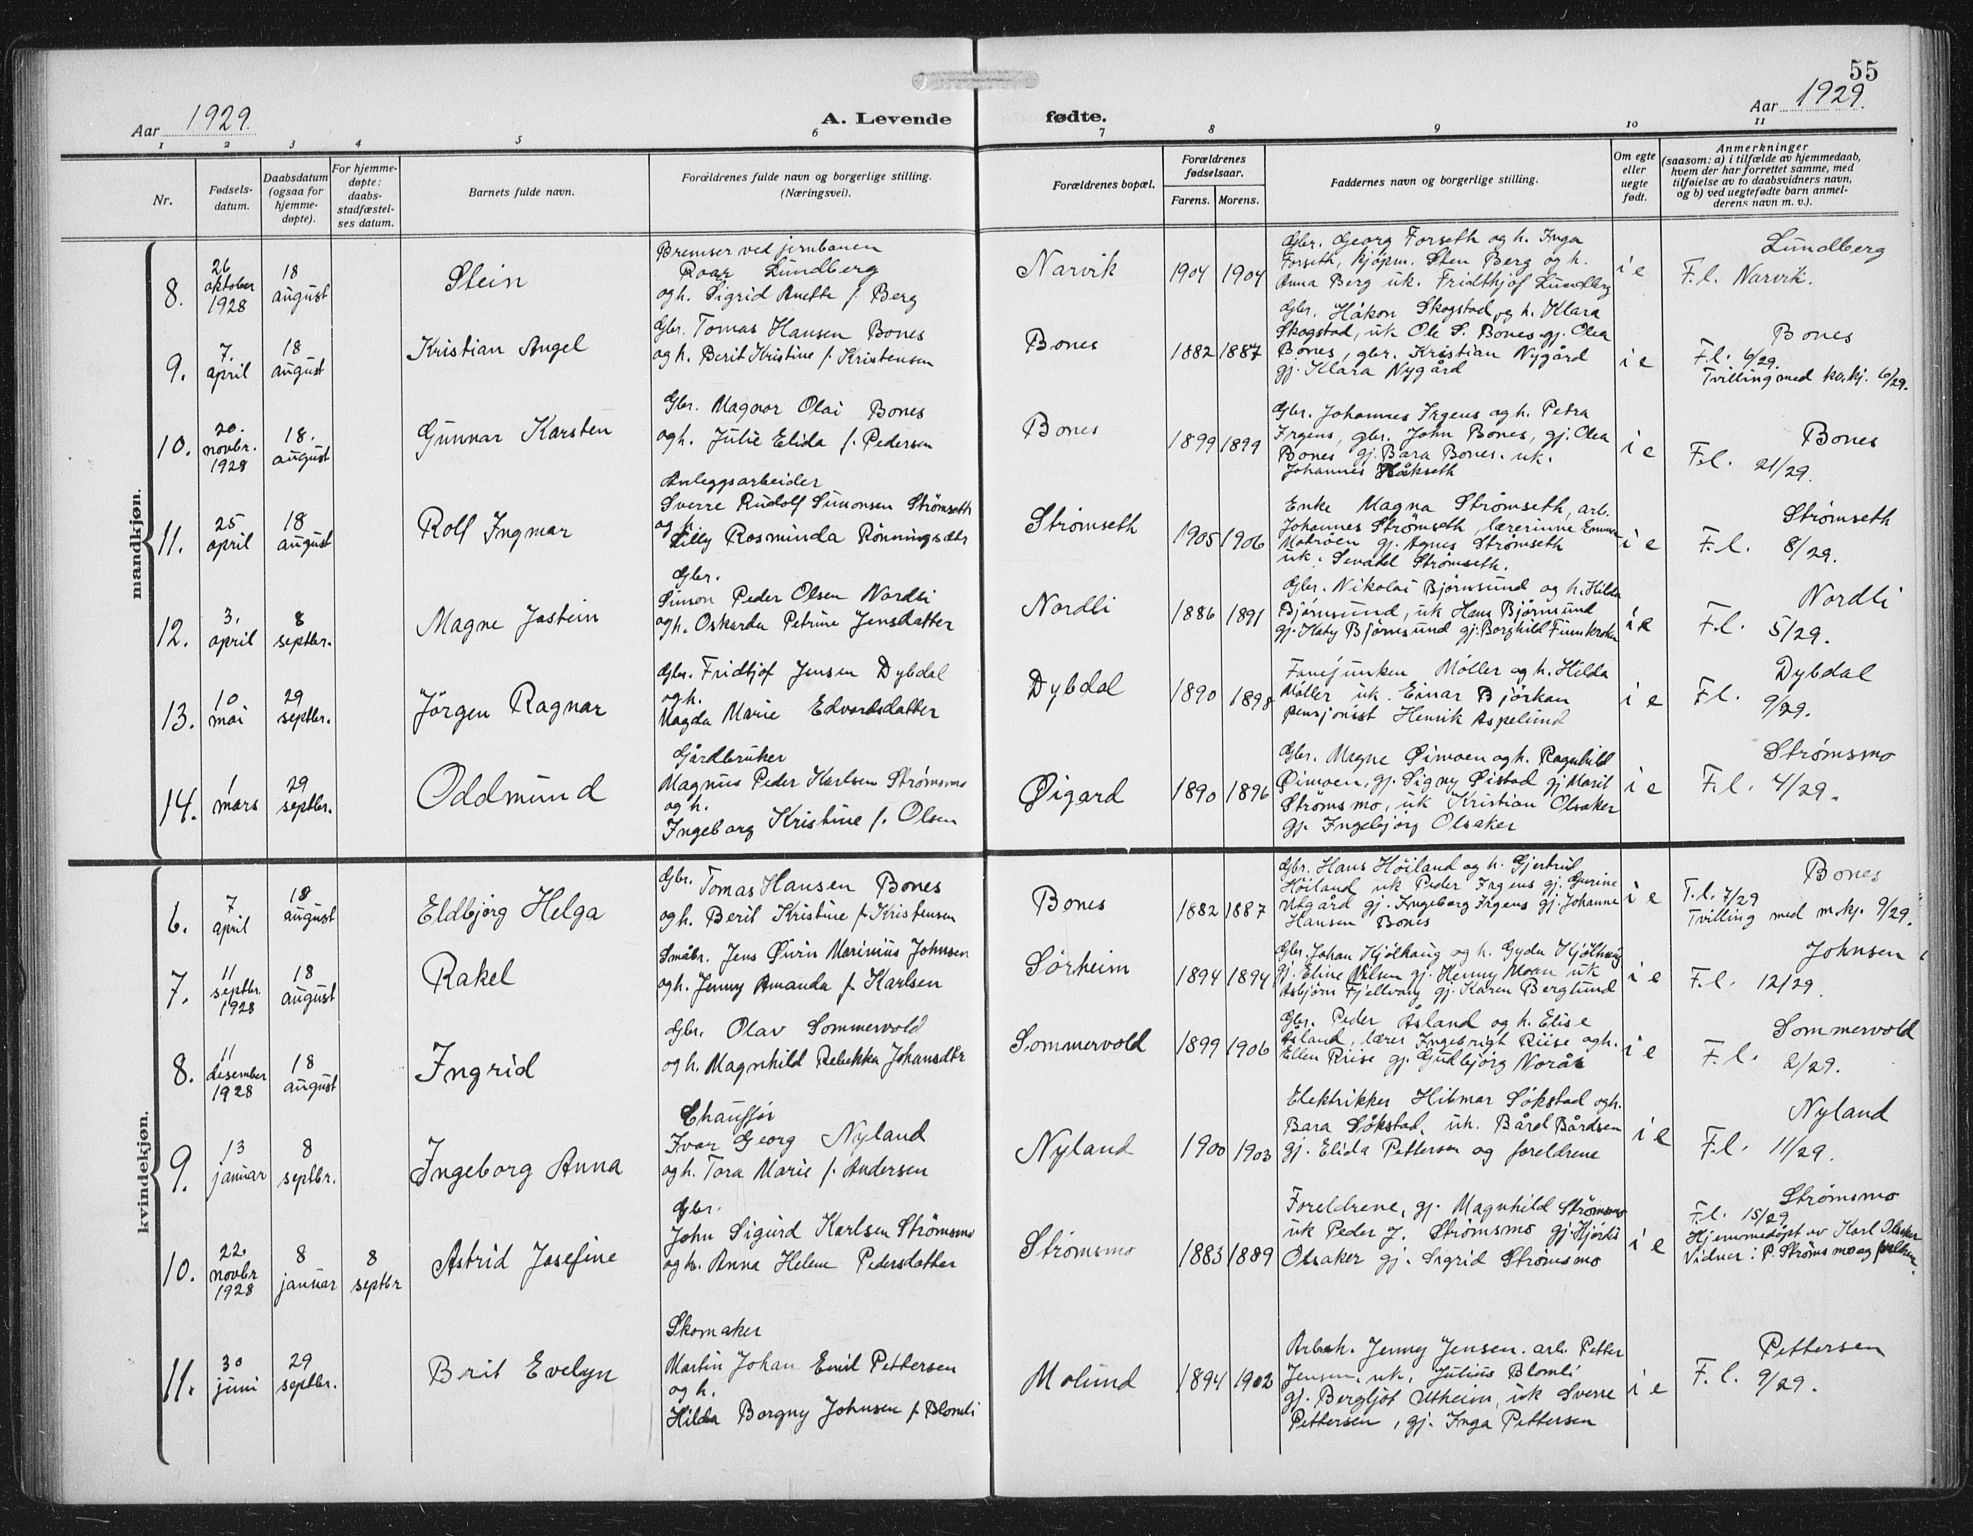 55
Aar 1929.
A. Levende fødte.
Aar 1929.
1 2 3 4 5 6 7 8 9 10 11
Nr.
Fødsels-
datum.
Daabsdatum
(ogsaa for
hjemme-
døpte).
For hjemme-
døpte:
daabs-
stadfæstel-
ses datum.
Barnets fulde navn.
Forældrenes fulde navn og borgerlige stilling.
(Næringsvei).
Forældrenes bopæl.
Forældrenes
fødselsaar.
Farens. Morens.
Faddernes navn og borgerlige stilling.
Om egte
eller
uegte
født.
Anmerkninger
(saasom: a) i tilfælde av hjemmedaab,
hvem der har forrettet samme, med
tilføielse av to daabsvidners navn,
og b) ved uegtefødte barn anmel-
derens navn m. v.).
mandkjøn.
8.
26
oktober
1928
18
august
Stein
Bremser ved jernbanen
Roar Lundberg
og h. Sigrid Anette f. Berg
Narvik
1904 1904
Gbr. Georg Forseth og h. Inga
Forseth, kjøpm. Sten Berg og h.
Anna Berg uk. Fridthjof Lundberg
i e
Lundberg
F.l. Narvik.
9.
7.
april
18
august
Kristian Angel
Gbr. Tomas Hansen Bones
og h. Berit Kristine f. Kristensen
Bones
1882 1887
Gbr. Håkon Skogstad og h. Klara
Skogstad, uk Ole S. Bones gj. Olea
Bones, gbr. Kristian Nygård
gj. Klara Nygård
i e
Bones
F.l. 6/29.
Tvilling med kv.kj. 6/29.
10.
20.
novbr.
1928
18.
august
Gunnar Karsten
Gbr. Magnor Olai Bones
og h. Julie Elida f. Pedersen
Bones
1899 1899
Gbr. Johannes Irgens og h. Petra
Irgens, gbr. John Bones, gj. Olea
Bones gj. Bara Bones. uk.
Johannes
i e
Bones
F.l. 21/29.
11.
25
april
18
august
Rolf Ingmar
Anleggsarbeider
Sverre Rudolf Simonsen Strømseth
og h.
Lilly Rosminda Rønningsæts
Strømseth
1905 1906
Enke Magna Strømseth, arb.
Johannes Strømseth, lærerinne Emma
Motrøen gj. Agnes Strømseth
uk. Strømseth.
i e
Strømseth
F.l. 8/29.
12.
3.
april
8
septbr.
Magne Jostein
Gbr.
Simon Peder Olsen Nordli
og h. Oskarda Petrine Jensdatter
Nordli
1886 1891
Gbr. Nikolai Bjørnsund og h. Hilda
Bjørnsund, uk Hans Bjørnsund
gj. Katy Bjørnsund gj. Borghild Finnkroken
i e
Nordli
F.l. 5/29.
13.
10
mai
29
septbr.
Jørgen Ragnar
Gbr. Fridtjof Jensen Dybdal
og h.
Magda Marie Edvardsdatter
Dybdal
1890 1898
Fanejunker Møller og h. Hilda
Møller uk. Einar Bjørkan
pensjonist Henrik Aspelund
i e
Dybdal
F.l. 9/29.
14.
1
mars
29
septbr.
Oddmund
Gårdbruker
Magnus Peder Karlsen Strømsmo
og h.
Ingeborg Kristine f. Olsen
Øigard
1890 1896
Gbr. Magne Øimoen og h. Ragnhild
Øimoen, gj. Signy Øistad gj. Marit
Strømsmo, uk Kristian Olsaker
gj. Ingebjørg Olsaker
i e
Strømsmo
F.l. 4/29.
kvindekjøn.
6.
7
april
18
august
Eldbjørg Helga
Gbr. Tomas Hansen Bones
og h. Berit Kristine f. Kristensen
Bones
1882 1887
Gbr. Hans Høiland og h. Gjertrud
Høiland uk Peder Irgens gj. Gurine
Utgård gj. Ingeborg Irgens gj. Johanne
Hansen Bones
i e
Bones
F.l. 7/29
Tvilling med m.kj. 9/29.
7.
11
septbr
1928
18
august
Rakel
Småbr. Jens Øivin Marinius Johnsen
og h. Jenny Amanda f. Karlsen
Sørheim
1894 1894
Gbr. Johan Kjølhaug og h. Gyda Kjølhaug
gj. Eline Nilsen gj. Henny Moan uk
Asbjørn Fjellvang gj. Karen Berglund
i e
Johnsen
F.l. 12/29.
8.
11
desember
1928
18
august
Ingrid
Gbr. Olav Sommervold
og h. Magnhild Rebekka Johansdtr
Sommervold
1899 1906
Gbr. Peder Åsland og h. Elise
Åsland, lærer Ingebrigt Riise og h.
Ellen Riise gj. Gudbjørg Norås
i e
Sommervold
F.l. 2/29.
9.
13
januar
8
septbr.
Ingeborg Anna
Chauffør
Ivar Georg Nyland
og h. Tora Marie f. Andersen
Nyland
1900 1903
Elektriker Hilmar Søkstad og h.
Bara Søkstad, uk. Bårdsen
gj. Elida Pettersen og foreldrene
i e
Nyland
F.l. 11/29.
10.
22.
novbr
1928
8
januar
8
septbr
Astrid Josefine
Gbr.
John Sigurd Karlsen Strømsmo
og h. Anna Helene Pedersdatter
Strømsmo
1883 1889
Foreldrene, gj. Magnhild Strømsmo
uk Peder J. Strømsmo gj. Hjørdis
Olsaker gj. Sigrid Strømsmo
i e
Strømsmo
F.l. 15/29
Hjemmedøpt av Karl Olsaker
Vidner: P. Strømsmo og
11.
30
juni
29
septbr.
Brit Evelyn
Skomaker
Martin Johan Emil Pettersen
og h.
Hilda Borgny Johnsen f. Blomli
Molund
1894 1902
Arbeih. Jenny Jensen. arb. Petter
Jensen, uk, Julius Blomli
gj. Bergljot Utheim, uk Sverre
Pettersen, gj. Inga Pettersen
i e
Pettersen
F.l. 9/29.